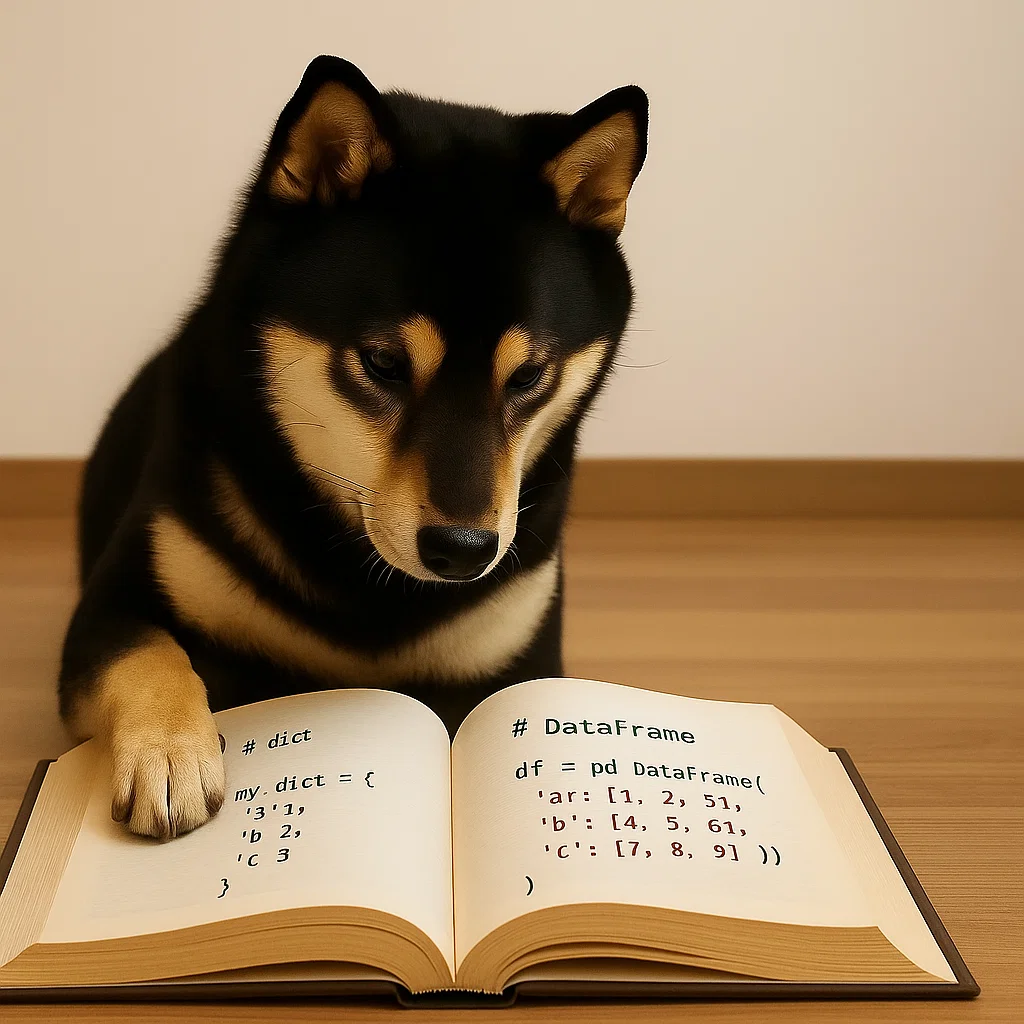 # dict
my.dict = {
'3'1,
'b 2,
'c 3
}
# DataFrame
df = pd DataFrame(
'ar: [1, 2, 51,
'b': [4, 5, 61,
'c': [7, 8, 9] ))
)